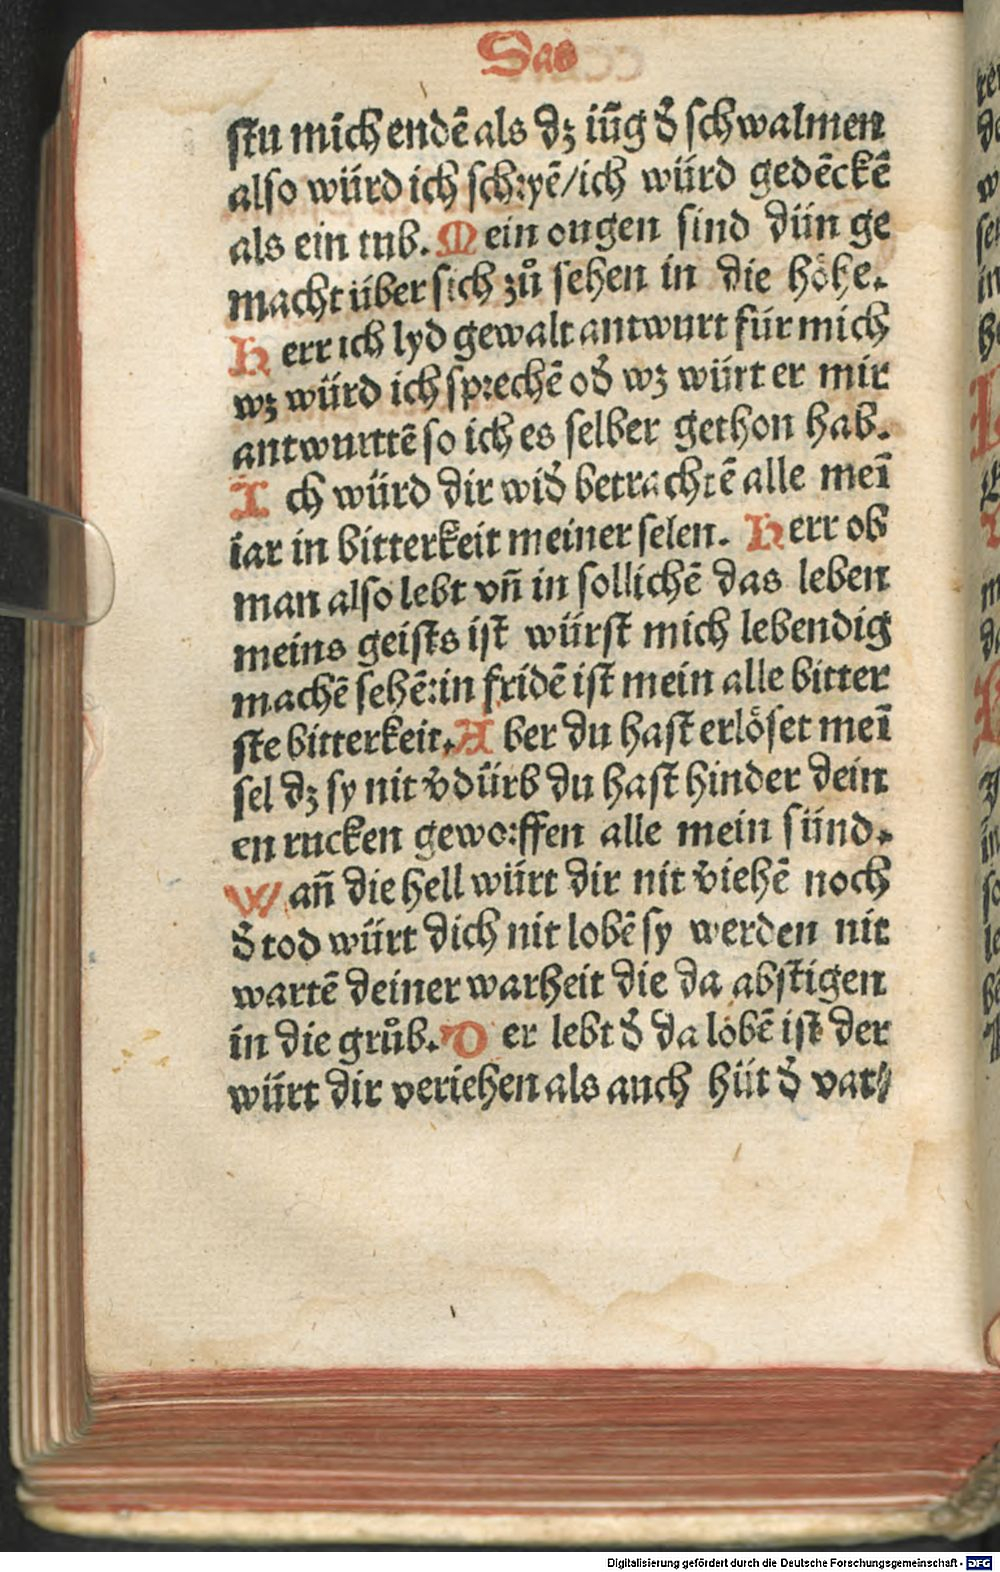 Das
stu mich endē als dz iūg d̄ schwalmen
also würd ich schryē/ich würd gedēckē
als ein tub. Mein ougen sind dün ge
macht über sich zů sehen in die höhe.
Herr ich lyd gewalt antwurt für mich
wz würd ich sprechē od̄ wz würt er mir
antwurttē so ich es selber gethon hab.
Ich würd dir wid̄ betrachtē alle meī
iar in bitterkeit meiner selen. Herr ob
man also lebt vn̄ in sollichē das leben
meins geists ist würst mich lebendig
machē sehē:in fridē ist mein alle bitter
ste bitterkeit. Aber du hast erlöset meī
sel dz sy nit v̄dürb du hast hinder dein
en rucken geworffen alle mein sünd.
Wan̄ die hell würt dir nit v̄iehē noch
d̄ tod würt dich nit lobē sy werden nit
wartē deiner warheit die da abstigen
in die grůb. Der lebt d̄ da lobē ist der
würt dir veriehen als auch hüt d̄ vat⸗
Digitalisierung gefördert durch die Deutsche Forschungsgemeinschaft - DFG